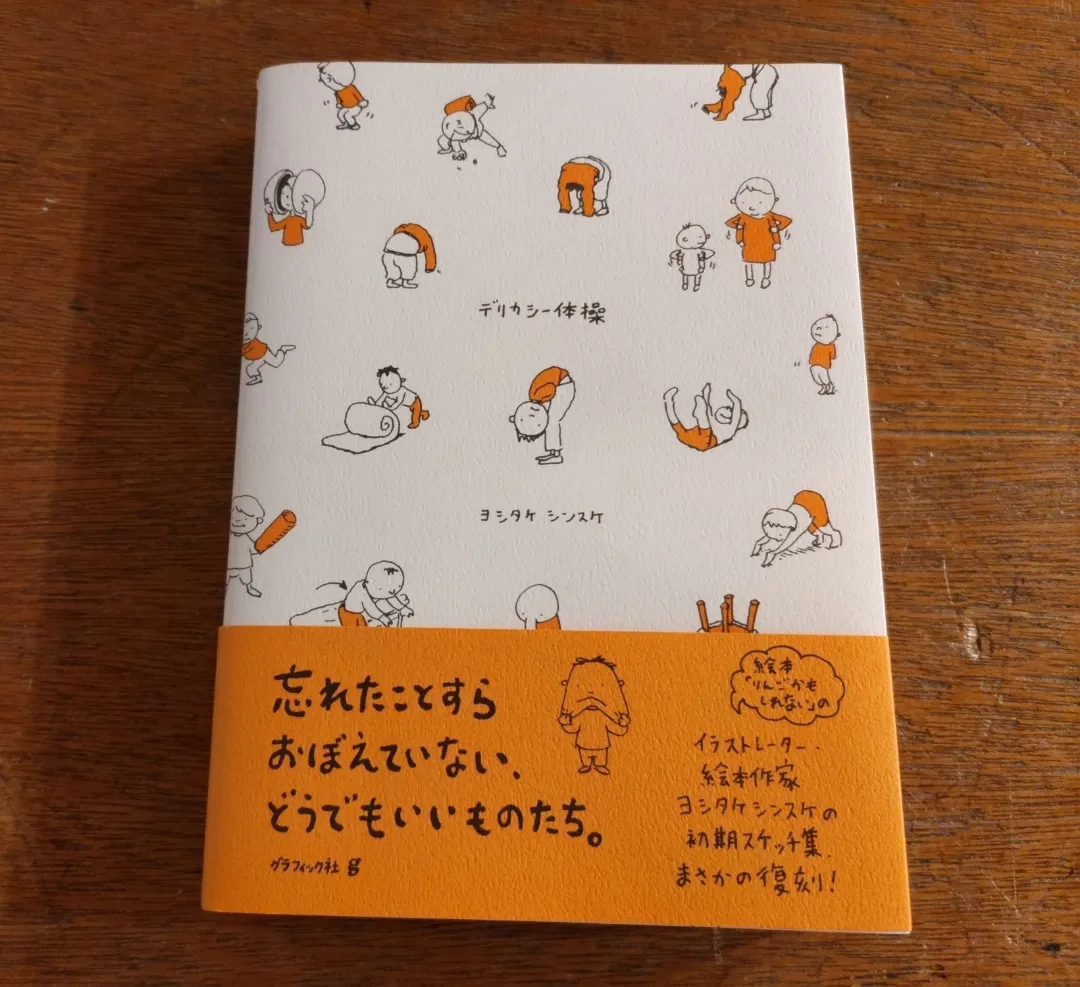 デリカシー体操
ヨシタケ シンスケ
忘れたことすら
おぼえていない、
どうでもいいものたち。
グラフィック社 g
絵本
「りんごかも
しれない」の
イラストレーター・
絵本作家
ヨシタケシンスケの
初期スケッチ集、
まさかの復刻!